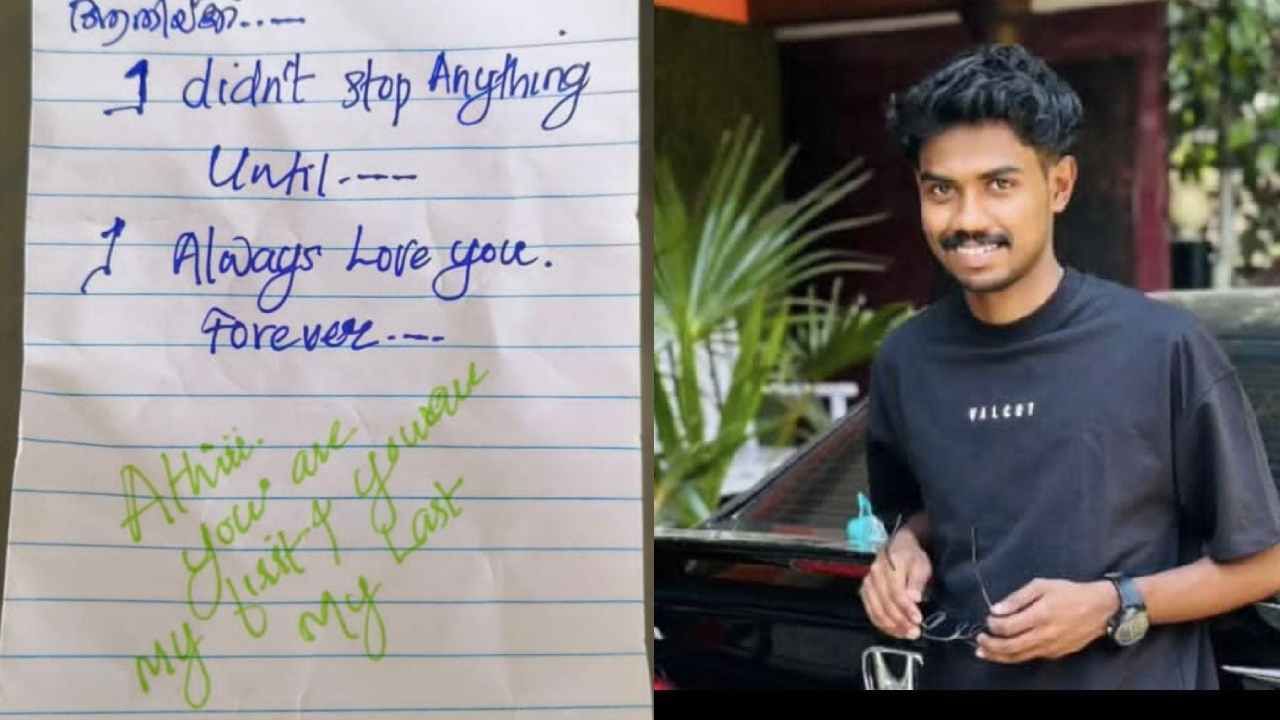 ആതിയ്ക്ക്.....
I didn't stop Anything
Until.----
I Always Love you.
Forever.---
Athiii.
You are
my first & you are
My Last
VALCUT